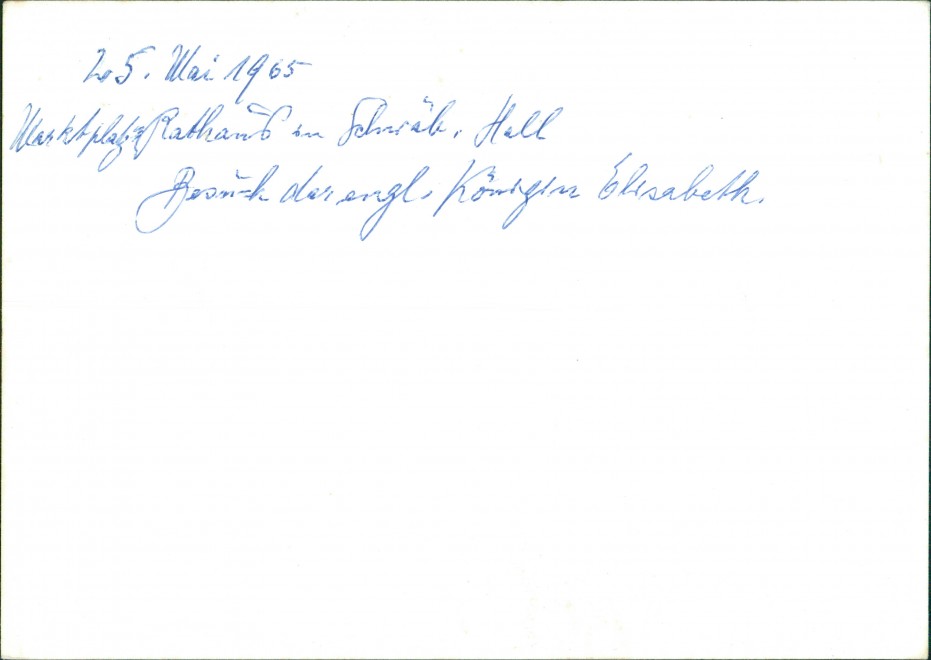 25. Mai 1965
Marktplatz Rathaus in Schwäb. Hall
Besuch der engl. Königin Elisabeth.